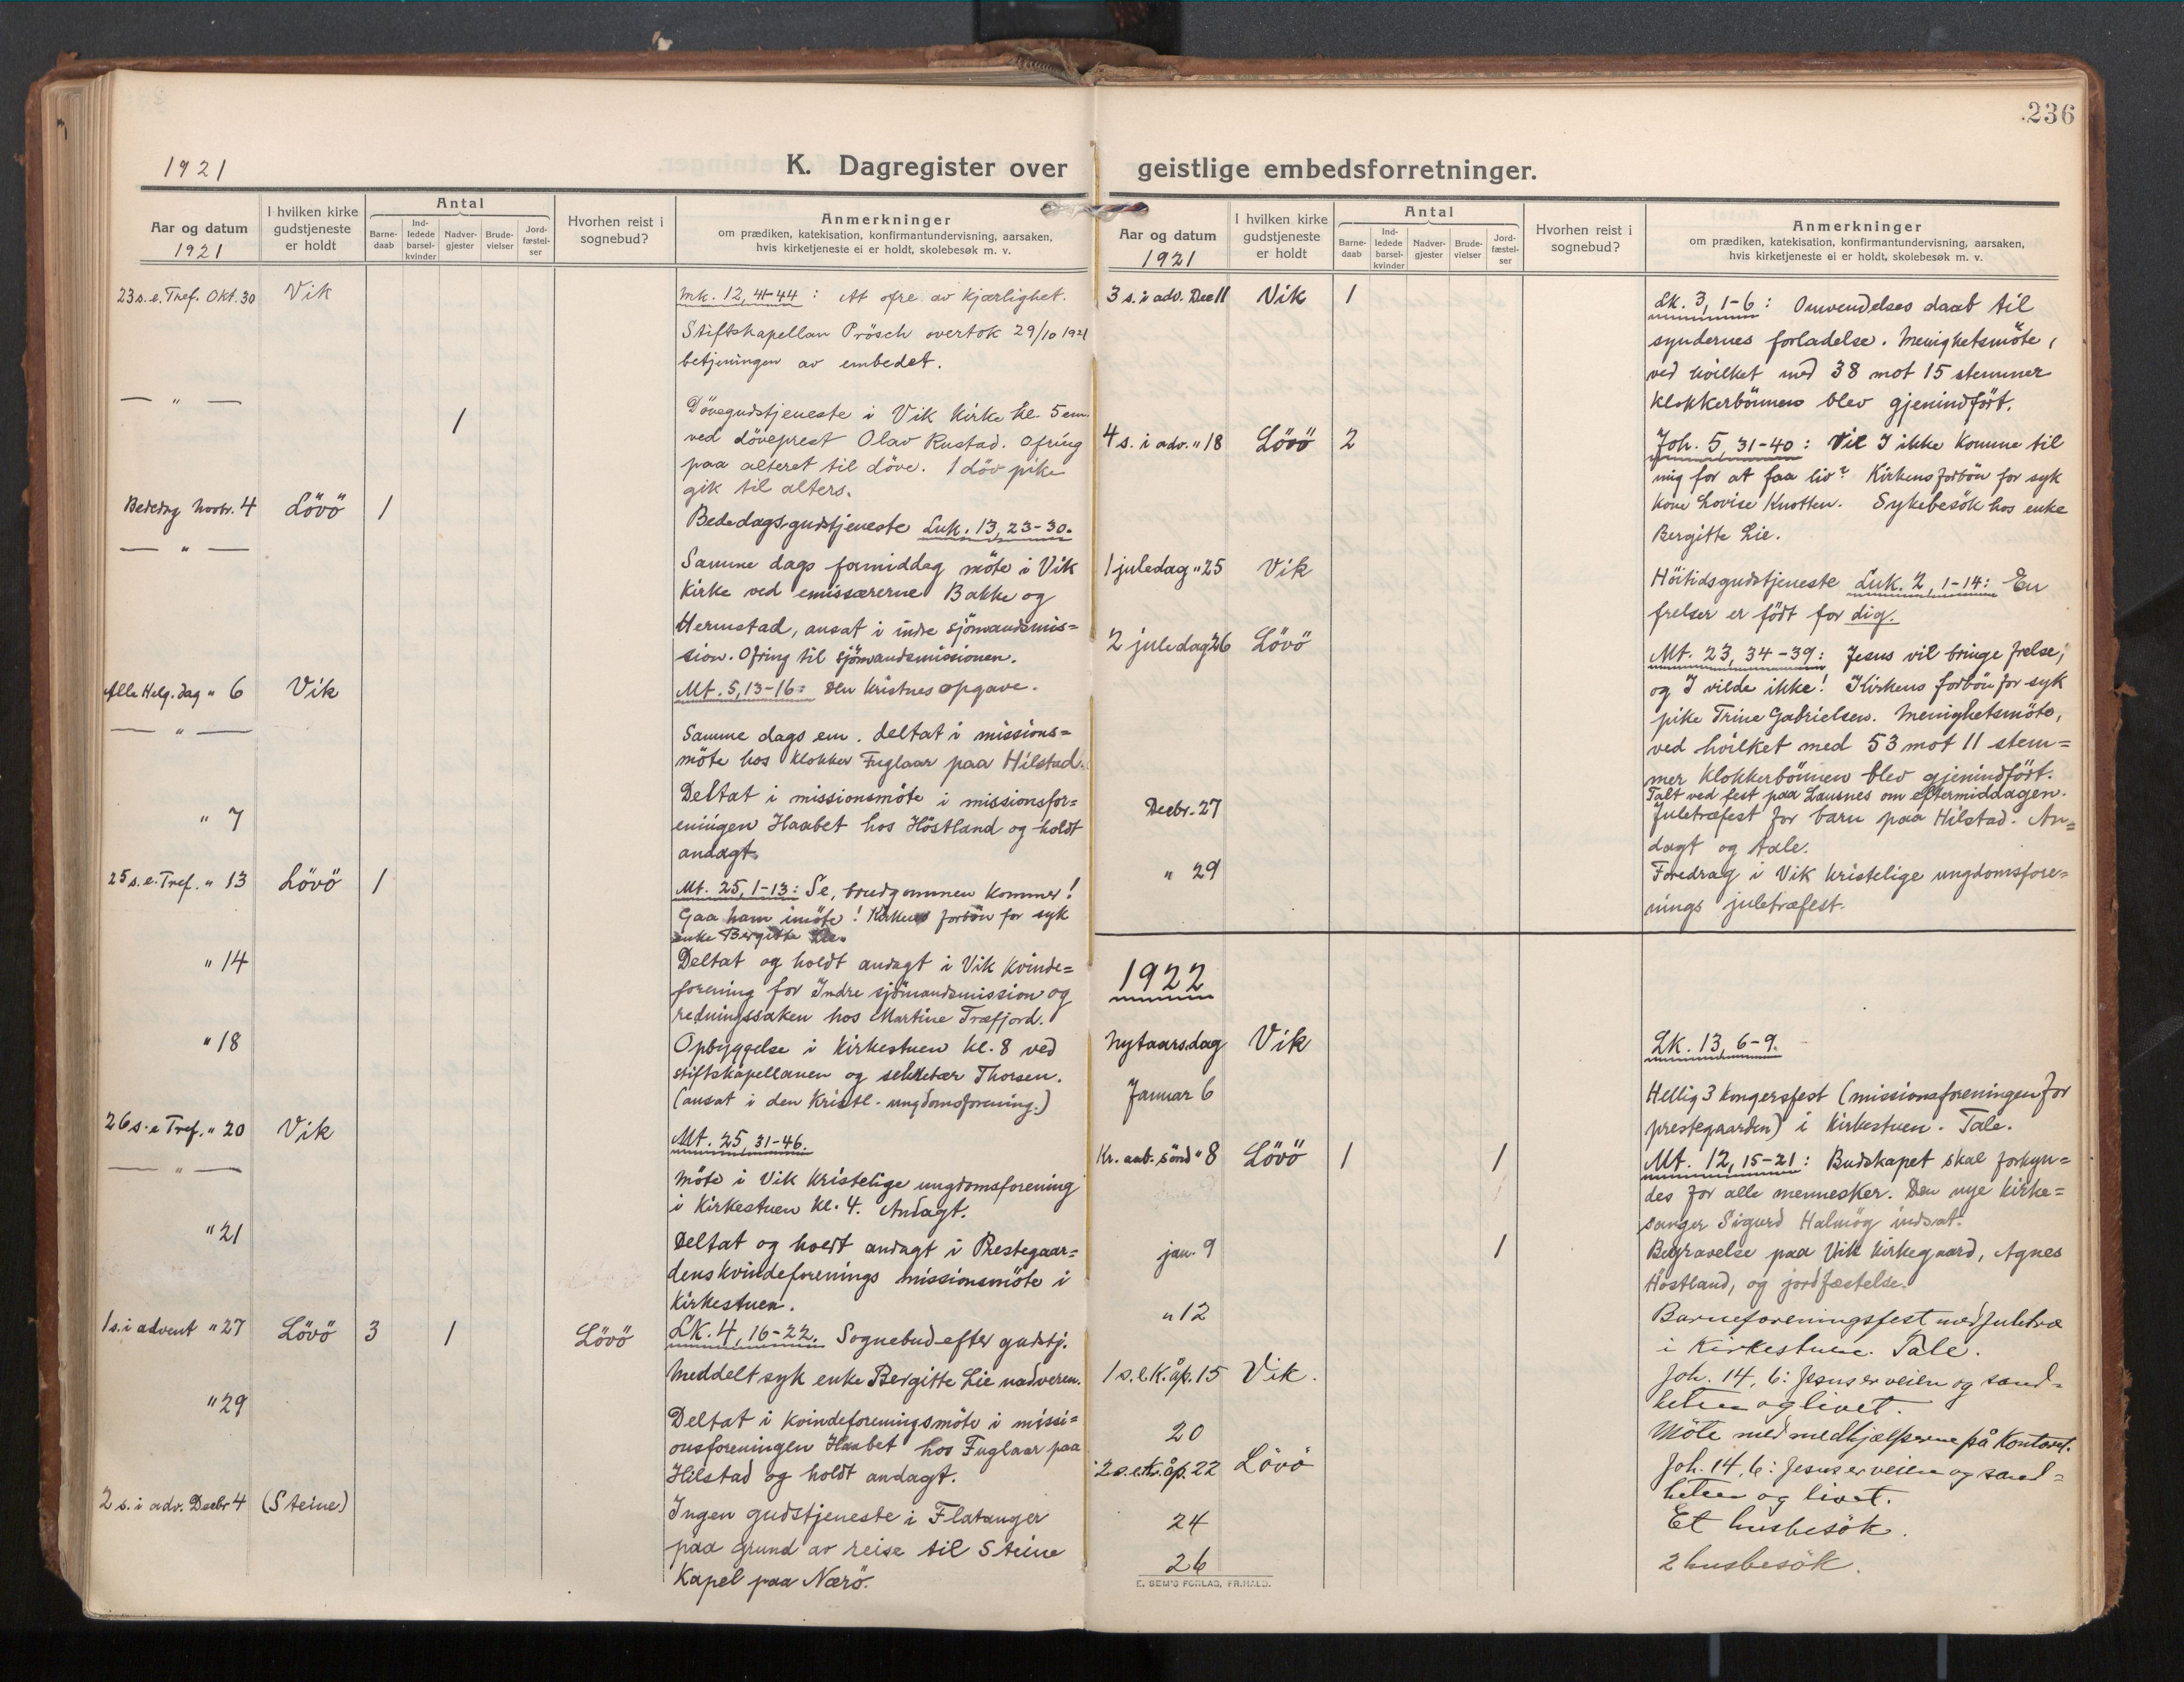 236
1921
K. Dagregister over geistlige embedsforretninger.
Aar og datum
1921
I hvilken kirke gudstjeneste er holdt
Antal
Barne-daab
Ind-ledede barsel-kvinder
Nadver-gjester
Brude-vielser
Jord-fæstel-ser
Hvorhen reist i sognebud?
Anmerkninger
om prædiken, katekisation, konfirmantundervisning, aarsaken,
hvis kirketjeneste ei er holdt, skolebesøk m. v.
23 s. e. Tref. Okt. 30 Vik Mk. 12, 41-44: At ofre av kjærlighet.
Stiftskapellan Prösch overtok 29/10 1921
betjeningen av embedet.
— " — 1 Dövegudstjeneste i Vik Kirke kl. 5 em.
ved döveprest Olav Rustad. Ofring
paa alteret til döve. 1 döv pike
gik til alters.
Bededag Novbr. 4 Lövö 1 Bededagsgudstjeneste Luk. 13, 23-30.
— " — Samme dags formiddag möte i Vik
Kirke ved emissærerne Bakke og
Hermstad, ansat i indre sjömandsmis=
sion. Ofring til sjömandsmissionen.
Alle Helg. dag " 6 Vik Mt. 5, 13-16: Den kristnes opgave.
— " — Samme dags em. deltat i missions=
möte hos klokker Fuglaar paa Hilstad.
" 7 Deltat i missionsmöte i missionsfor=
eningen Haabet hos Höstland og holdt
andagt.
25 s. e. Tref. " 13 Lövö 1 Mt. 25, 1-13: Se, brudgommen kommer!
Gaa ham imöte! Kirkens forbön for syk
enke Bergitte Lie.
" 14 Deltat og holdt andagt i Vik kvinde=
forening for Indre sjömandsmission og
redningssaken hos Martine Træfjord.
" 18 Opbyggelse i Kirkestuen kl. 8 ved
stiftskapellanen og sekretær Thorsen.
(ansat i den Kristl. ungdomsforening.)
26 s. e Tref. " 20 Vik Mt. 25, 31-46.
— " — Möte i Vik Kristelige ungdomsforening
i Kirkestuen kl. 4. Andagt.
" 21 Deltat og holdt andagt i Prestegaar=
dens kvindeforenings missionsmöte i
Kirkestuen.
1 s. i advent " 27 Lövö 3 1 Lövö LK. 4, 16-22. Sognebud efter gudstj.
Meddelt syk enke Bergitte Lie nadveren.
" 29 Deltat i kvindeforeningsmöte i missi=
onsforeningen Haabet hos Fuglaar paa
Hilstad og holdt andagt.
2 s. i adv. Decbr 4 (Steine) Ingen gudstjeneste i Flatanger
paa grund av reise til Steine
Kapel paa Nærö.
Aar og datum
1921
I hvilken kirke gudstjeneste er holdt
Antal
Barne-daab
Ind-ledede barsel-kvinder
Nadver-gjester
Brude-vielser
Jord-fæstel-ser
Hvorhen reist i sognebud?
Anmerkninger
om prædiken, katekisation, konfirmantundervisning, aarsaken,
hvis kirketjeneste ei er holdt, skolebesøk m. v.
3 s. i adv. Dec 11 Vik 1 Lk. 3, 1-6: Omvendelses daab til
syndernes forladelse. Menighetsmöte,
ved hvilket med 38 mot 15 stemmer
klokkerbönnen blev gjenindfört.
4 s. i adv. " 18 Lövö 2 Joh. 5, 31-40: Vil I ikke komme til
mig for at faa liv? Kirkens forbön for syk
kone Lovise Knotten. Sykebesök hos enke
Bergitte Lie.
1 juledag " 25 Vik Höitidsgudstjeneste Luk. 2, 1-14: En
frelser er födt for dig.
2 juledag 26 Lövö Mt. 23, 34-39: Jesus vil bringe frelse,
og I vilde ikke! Kirkens forbön for syk
pike Trine Gabrielsen. Menighetsmöte,
ved hvilket med 53 mot 11 stem=
mer klokkerbönnen blev gjenindfört.
Talt ved fest paa Lausnes om eftermiddagen.
Decbr. 27 Juletræfest for barn paa Hilstad. An=
dagt og tale.
" 29 Foredrag i Vik kristelige ungdomsfore=
nings juletræfest.
1922
Nytaarsdag Vik Lk. 13, 6-9.
Januar 6 Hellig 3 kongersfest (missionsforeningen for
prestegaarden) i Kirkestuen. Tale.
Kr. aab. sönd " 8 Lövö 1 1 Mt. 12, 15-21: Budskapet skal forkyn=
des for alle mennesker. Den nye kirke=
sanger Sigurd Halmög indsat.
jan. 9 1 Begravelse paa Vik Kirkegaard, Agnes
Höstland, og jordfæstelse.
" 12 Barneforeningsfest med juletræ
i Kirkestuen. Tale.
1 s. e. K. åp. 15 Vik. Joh. 14, 6: Jesus er veien og sand=
heten og livet.
20 Möte med medhjælperne på Kontoret.
2 s. e. K. åp. 22 Lövö Joh. 14, 6: Jesus er veien og sand=
heten og livet.
24 Et husbesök.
26 2 husbesök.
E. SEM'S FORLAG, FR.HALD.